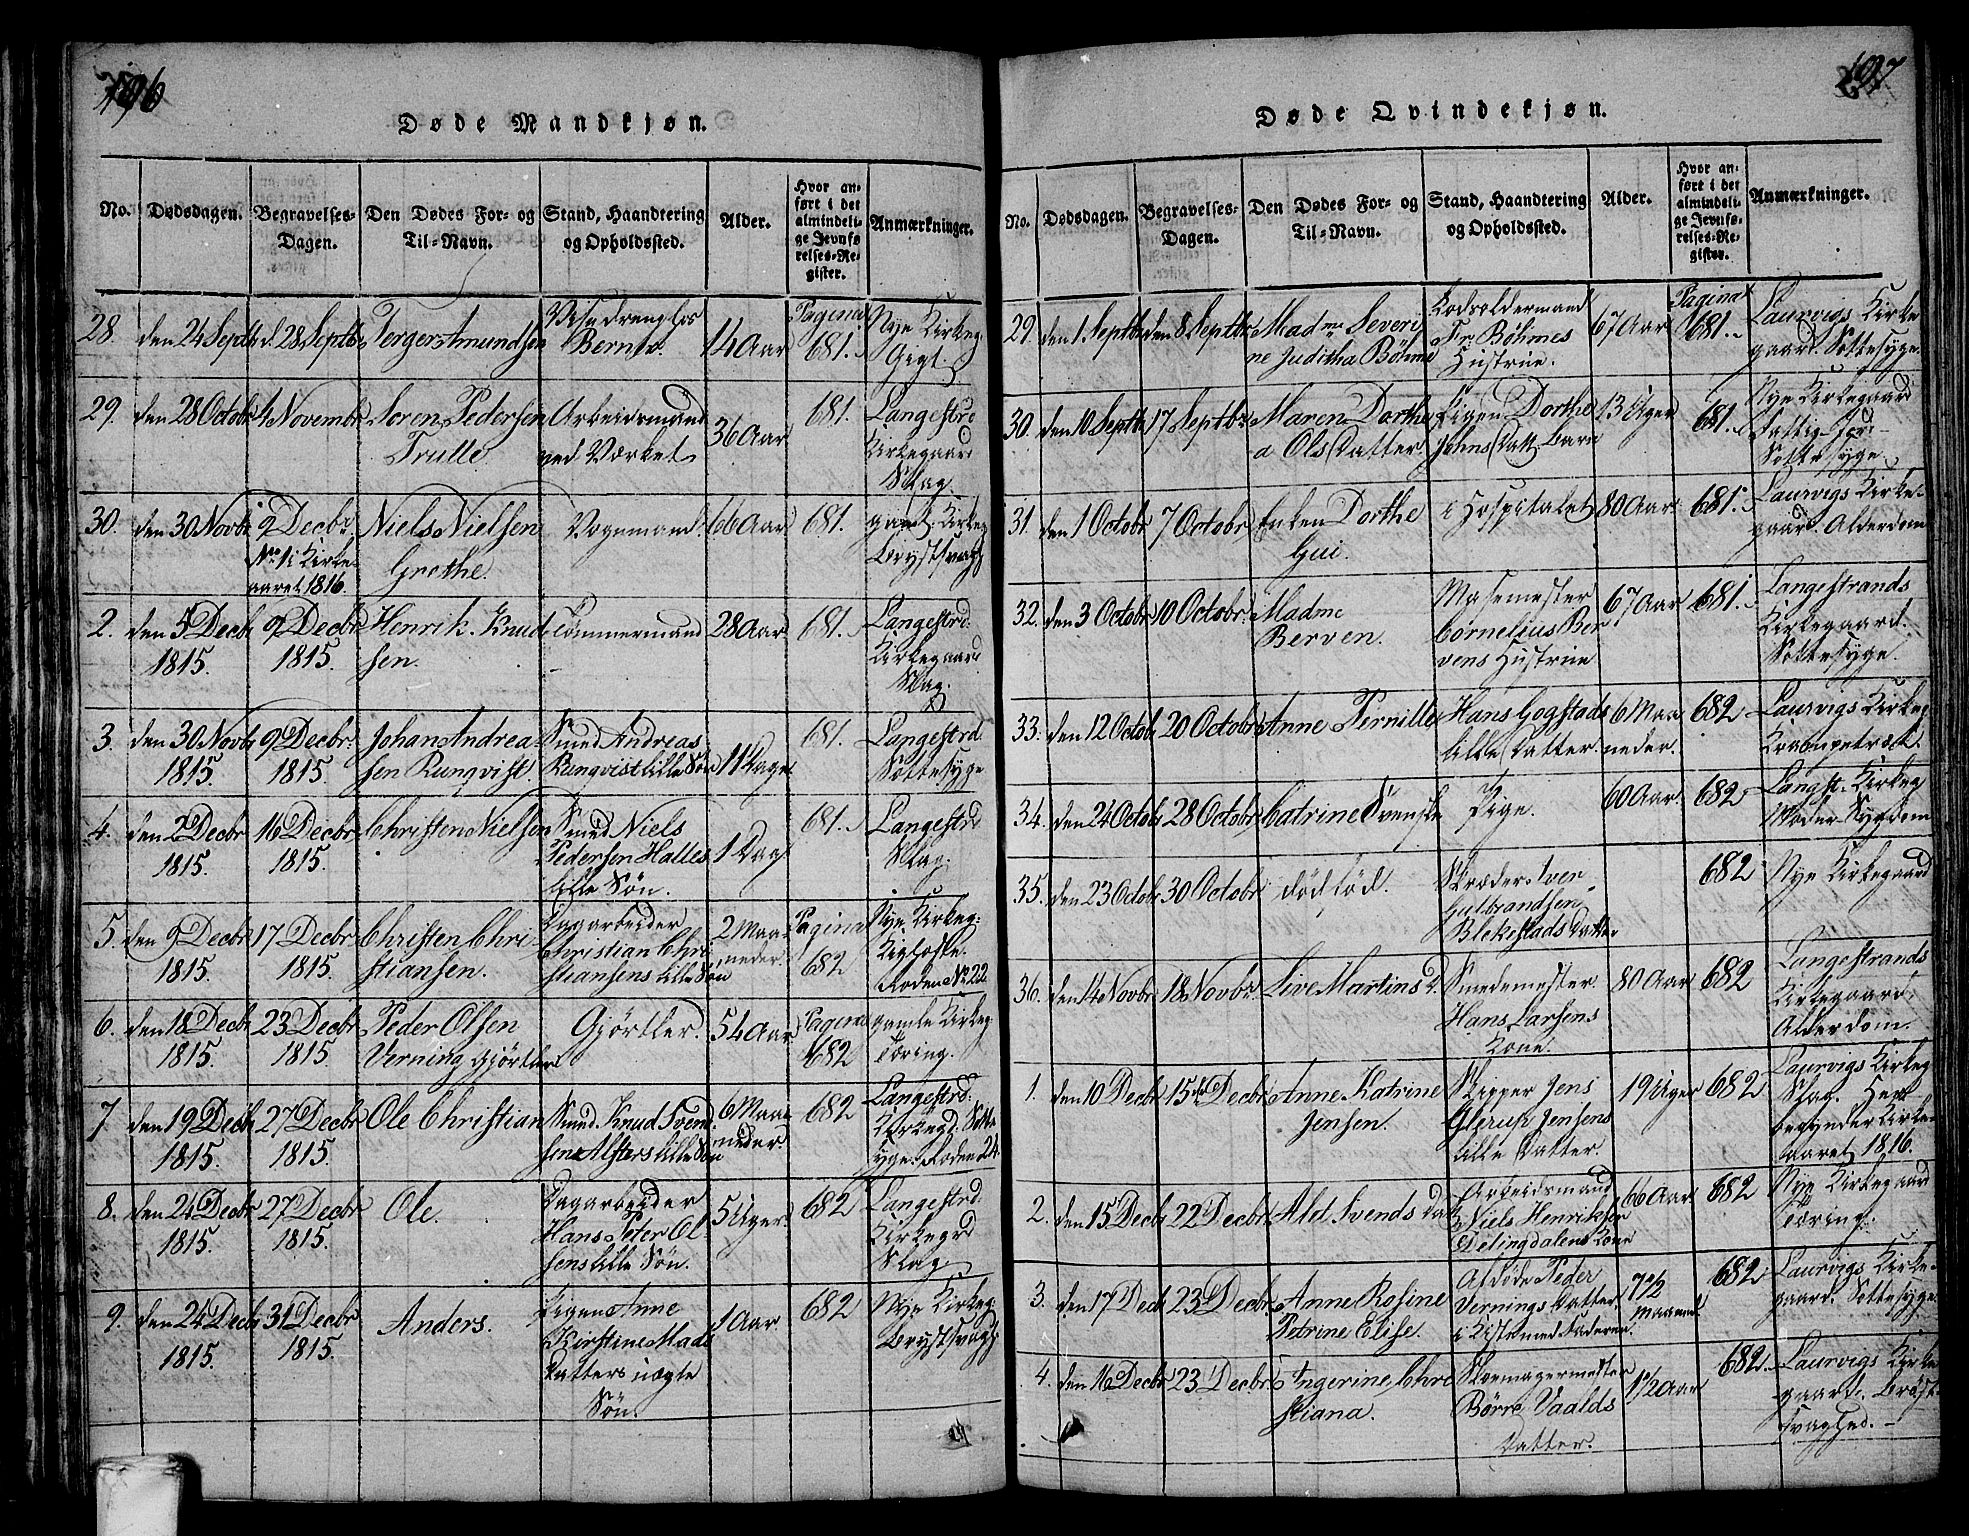 196
Døde Mandkjøn.
No. Dødsdagen. Begravelses-Dagen. Den Dødes For- og Til-Navn. Stand, Haandtering og Opholdssted. Alder. Hvor anført i det almindelige Jevnførelses-Register. Anmærkninger.
28. den 24 Septb d. 28 Septbr Terger Amundsen Bernt 14 Aar Pagina 681. Nye Kirkeg. Gigt.
29. den 28 Octobr 4 Novembr Soren Pedersen Trulle Arbeidsmand ved Værket 36 Aar 681. Langestrd Kirkegaard Slag.
30. den 30 Novbr 9 Decbr. No. 1 i Kirkeaaret 1816. Niels Nielsen Grothe. Vognmand. 66 Aar 681. gaml. Kirkeg Brystsvagh
2. den 5 Decbr 1815. 9 Decbr 1815. Henrik Knudsen. Tømmermand 28 Aar 681. Langestrd. Kirkegaard Slag.
3. den 30 Novbr 1815. 9 Decbr. 1815. Johan Andreasen Runqvist. Smed Andreas Runqvist lille Søn 11 Dage 681. Langestrd Sottesyge
4. den 2 Decbr 1815. 16 Decbr 1815. Christen Nielsen Smed Niels Pedersen Halles lille Søn. 1 Dag 681. Langestrd Slag.
5. den 9 Decbr 1815. 17 Decbr 1815. Christen Christiansen. Dagarbeider Christian Christiansens lille Søn 2 Maaneder. Pagina 682 Nye Kirkeg: Roden No 22
6. den 18 Decbr 1815. 23 Decbr 1815. Peder Olsen Verning Gjørtler Gjørtler. 54 Aar Pagina 682 gamle Kirkeg Tæring.
7 den 19 Decbr 1815. 27 Decbr 1815. Ole Christian Smed Knud Svendsen Alsters lille Søn 6 Maaneder. 682 Langestrd. Kirkegd. Sottesyge. Roden 24.
8. den 24 Decbr 1815. 27 Decbr 1815. Ole. Dagarbeider Hans Peter Olsens lille Søn. 5 Uger. 682 Langestrd. Kirkegrd Slag.
9. den 24 Decbr 1815. 31 Decbr 1815. Anders. Pigen Anne Kirstine Mads Datters uægte Søn. 1 Aar 682 Nye Kirkeg. Brystsvagh
197
Døde Qvindekjøn.
No. Dødsdagen. Begravelses-Dagen. Den Dødes For- og Til-Navn. Stand, Haandtering og Opholdssted. Alder. Hvor anført i det almindelige Jevnførelses-Register. Anmærkninger.
29. den 1 Septbr den 8 Septbr Madme Severine Juditha Bøhme Fr Bøhmes Hustrue. 67 Aar Pagina 681. Laurvigs Kirkegaard. Sottesyge.
30. den 10 Septb 17 Septbr Maren Dorthea Ols Datter Pigen Dorthe Johns Datt. Barn 13 Uger 681. Nye Kirkegaard Fattig-Jord- Sottesyge
31. den 1 Octobr 7 Octobr Enken Dorthe Gui. i Hospitalet 80 Aar. 681. Laurvigs Kirkegaard. Alderdom
32. den 3 Octobr 10 Octobr. Madme Berven. Masemester Cornelius Bervens Hustrue 67 Aar 681. Langestrands Kirkegaard. Sottesyge.
33. den 12 Octob 20 Octobr Anne Pernille Hans Gogstads lille Datter. 6 Maaneder. 682 Laurvigs Kirkeg Krampetræk.
34. den 24 Octob 28 Octobr Catrine Svensk Pige. 60 Aar. 682 Langst. Kirkeg Moder-Sygdom
35. den 23 Octob 30 Octobr død fød. Skræder Iver Gulbrandsen Blekestads Datter 682 Nye Kirkegaard
36. den 14 Novbr 18 Novbr. Live Martins d. Smedemester Hans Larsens Kone. 80 Aar 682 Langestrands Kirkegaard, Alderdom.
1. den 10 Decbr 15de Decbr Anne Katrine Jensen. Skipper Jens Glerup Jensens lille Datter. 19 Uger 682 Laurvigs Kirkeg Slag. Her begynder Kirkeaaret 1816.
2. den 15 Decb 22 Decbr. Alet Svends Dat Arbeidsmand Niels Henriksen Delingdalens Kone 66 Aar 682 Nye Kirkegaard Tæring.
3. den 17 Decb 23 Decbr. Anne Rosine Petrine Elise. Afdøde Peder Vernings Datter. i Kiste med Faderen. 7 1/2 Maaned 682 Laurvigs Kirkegaard. Sottesyge.
4. den 16 Decbr 23 Decbr. Ingerine Christiana. Skomagermester Børre Vaalds Datter. 1 1/2 Aar 682. Laurvigs Kirkegaard. Brøstsvaghed.